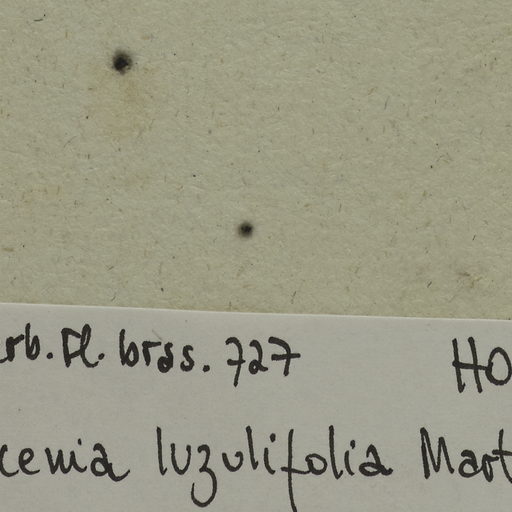 rb. Fl. bras. 727 HO
cenia luzulifolia Mart